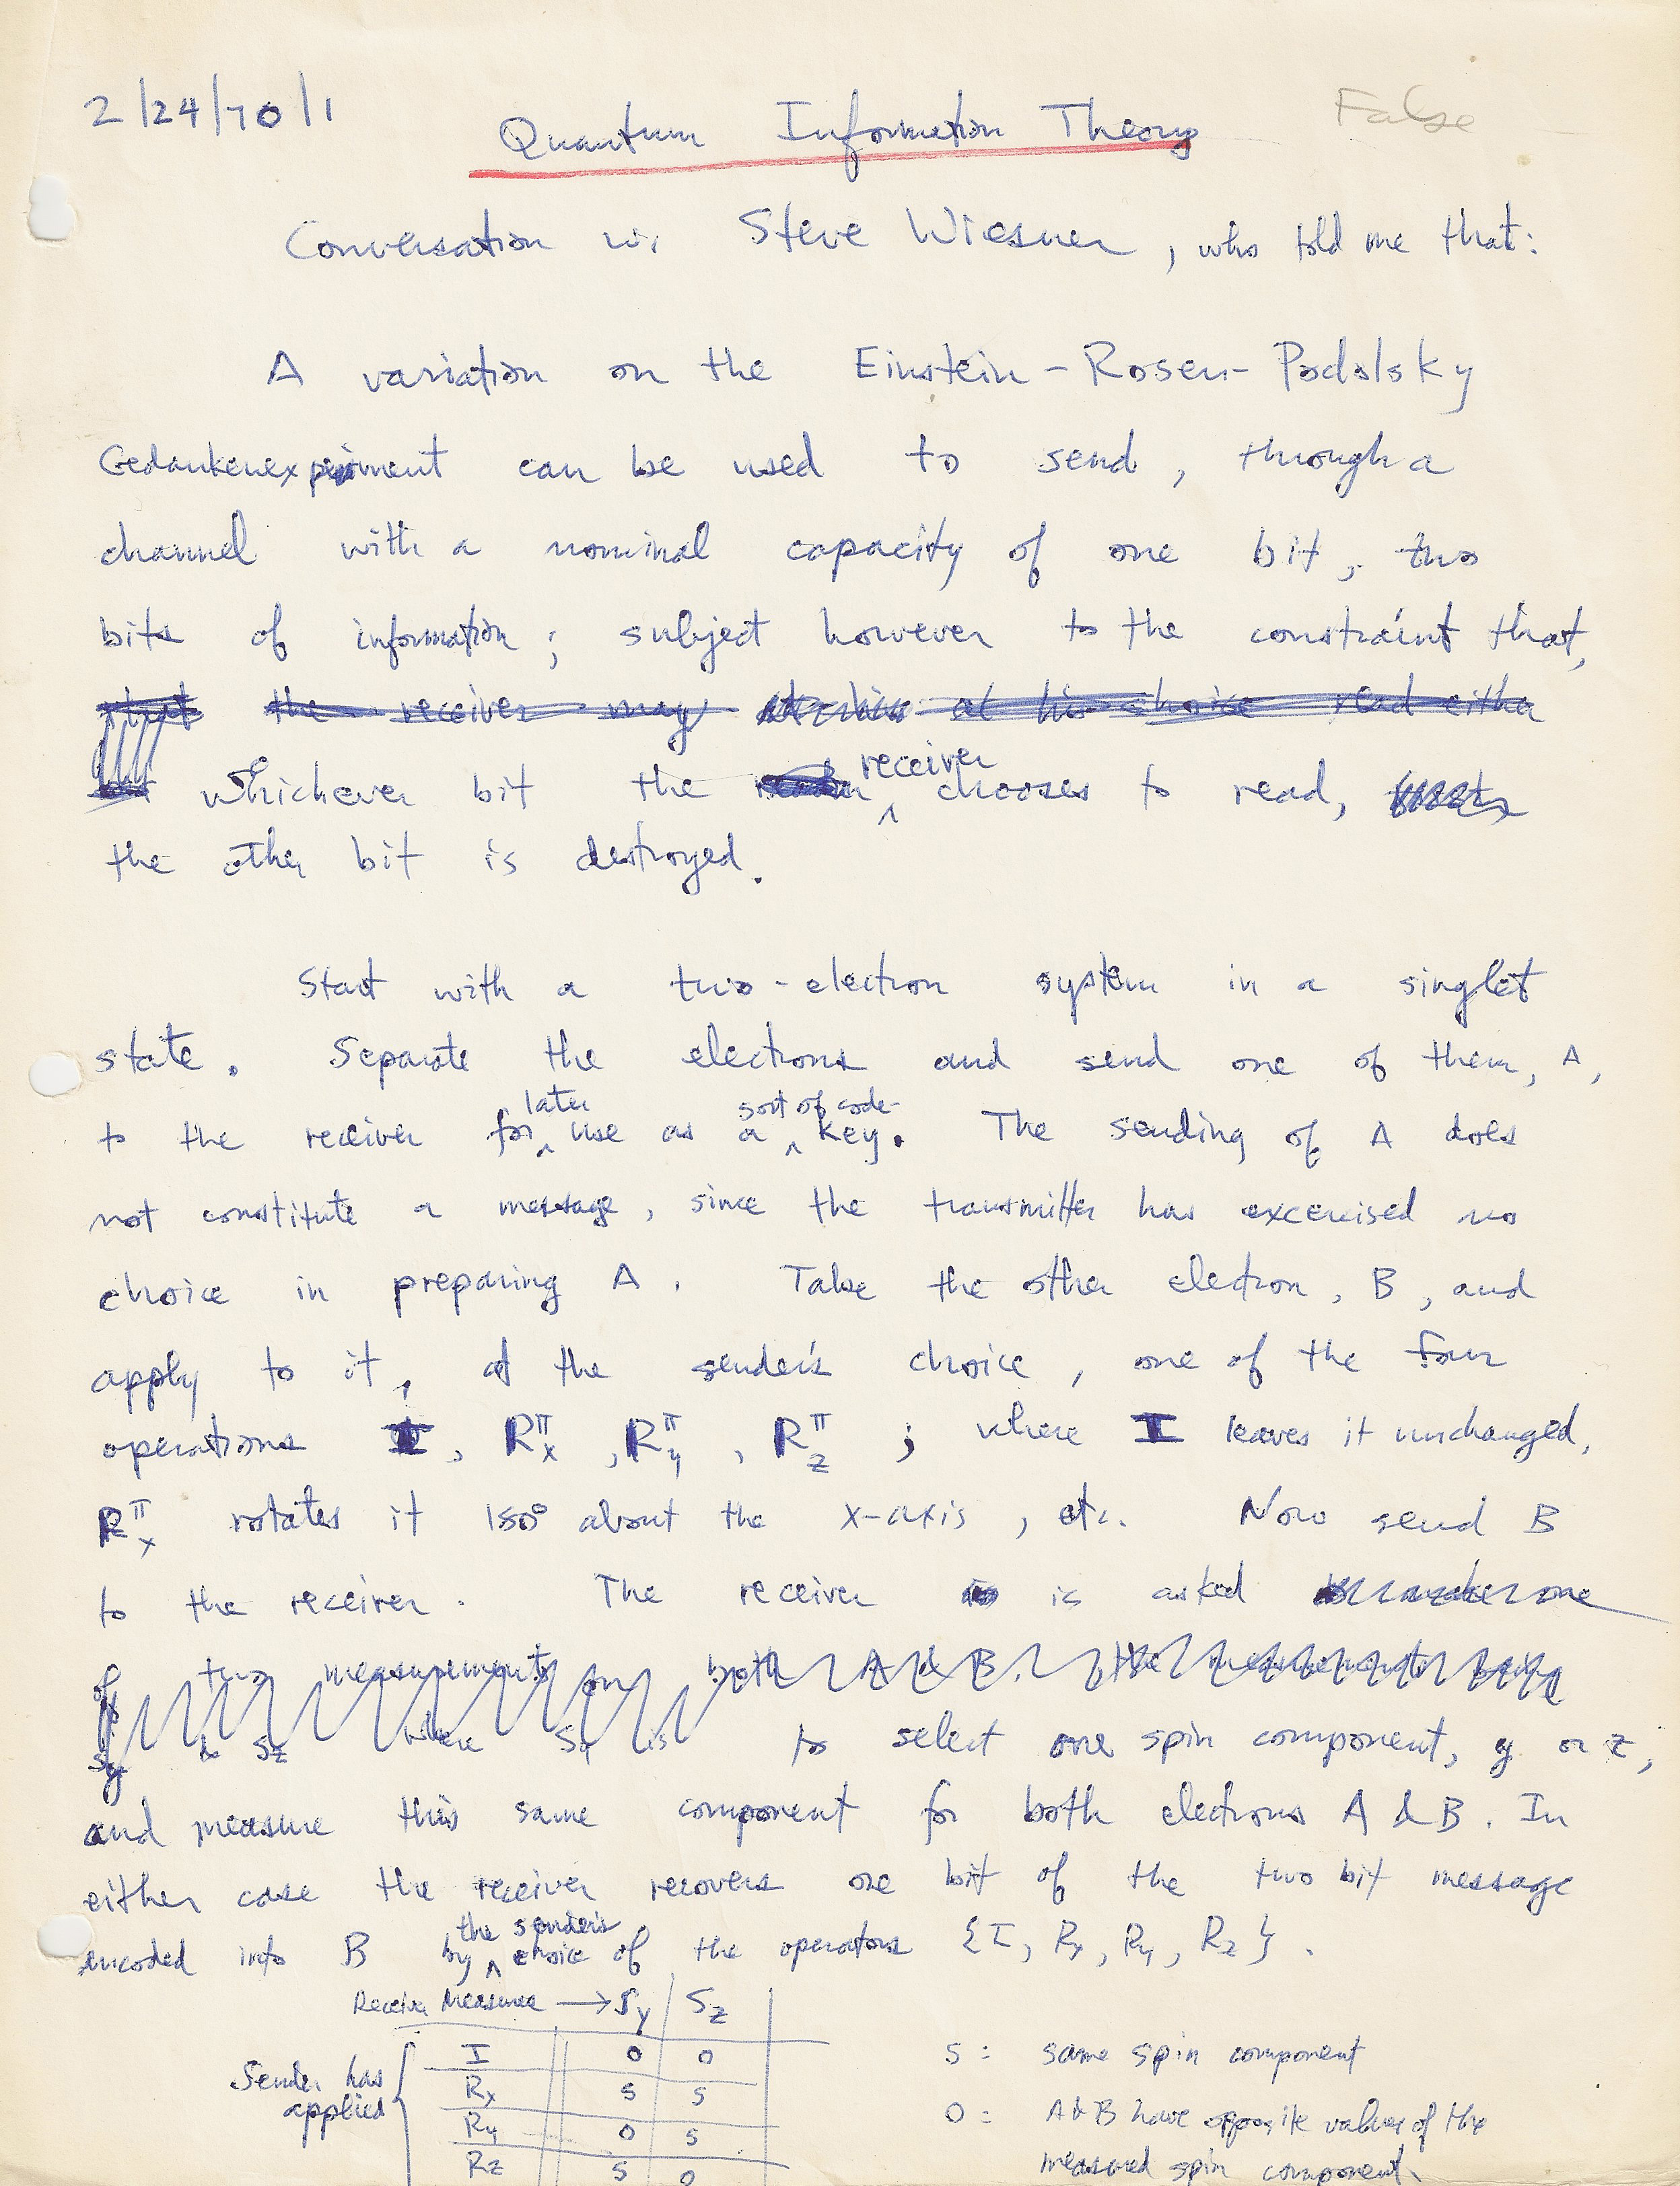 2/24/70/1
False
Quantum Information Theory
Conversation w. Steve Wiesner, who told me that:
A variation on the Einstein-Rosen-Podolsky
Gedankenexperiment can be used to send, through a
channel with a nominal capacity of one bit, two
bits of information; subject however to the constraint that,
the receiver may at his choice read either
whichever bit the receiver chooses to read,
the other bit is destroyed.
Start with a two-electron system in a singlet
state. Separate the electrons and send one of them, A,
to the receiver for later use as a sort of code-key. The sending of A does
not constitute a message, since the transmitter has excercised no
choice in preparing A. Take the other electron, B, and
apply to it, at the sender's choice, one of the four
operations I, R_x^π, R_y^π, R_z^π; where I leaves it unchanged,
R_x^π rotates it 180° about the x-axis, etc. Now send B
to the receiver. The receiver is asked to make one
of two measurements on both A & B, the measurements being
Sy & Sz where Sy is to select one spin component, y or z,
and measure this same component for both electrons A & B. In
either case the receiver recovers one bit of the two bit message
encoded into B by the sender's choice of the operators {I, Rx, Ry, Rz}.
Receiver Measures → Sy Sz
Sender has applied
I O O
Rx S S
Ry O S
Rz S O
S: same spin component
O = A & B have opposite values of the
measured spin component.